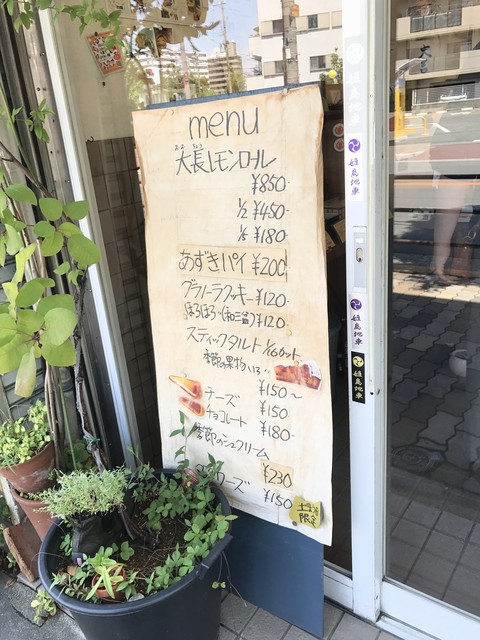 menu
大長レモンロール
おおちょう
¥850-
1/2 ¥450-
1/5 ¥180-
あずきパイ ¥200
グラノーラクッキー ¥120-
ほろほろ(和三盆) ¥120
スティックタルト 1/6カット
季節の果物いろいろ
¥150〜
チーズ ¥150
チョコレート ¥180-
季節のシュクリーム
¥230
ワーズ ¥150
土・日
限定
姫島地車
姫島地車
姫島地車
姫島地車